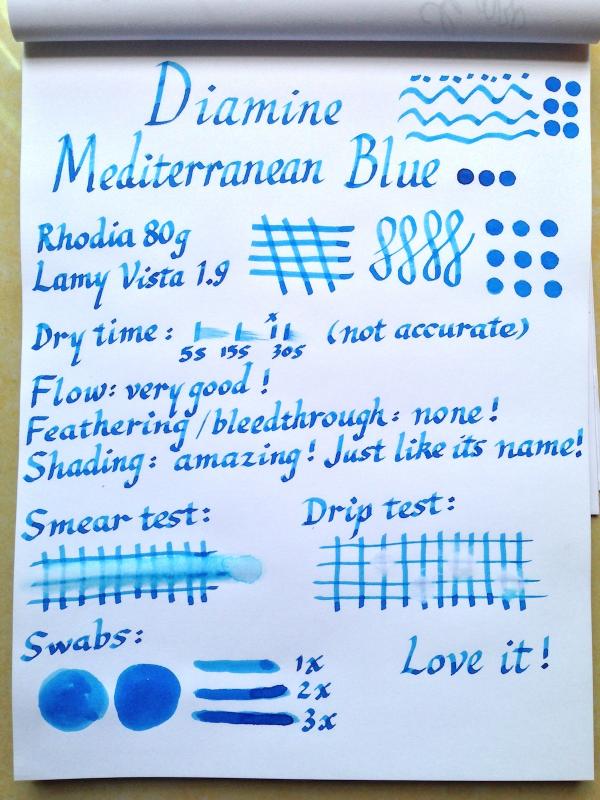 Diamine
Mediterranean Blue
Rhodia 80g
Lamy Vista 1.9
Dry time: (not accurate)
x
5s 15s 30s
Flow: very good!
Feathering/bleedthrough: none!
Shading: amazing! Just like its name!
Smear test: Drip test:
Swabs:
Love it!
1x
2x
3x